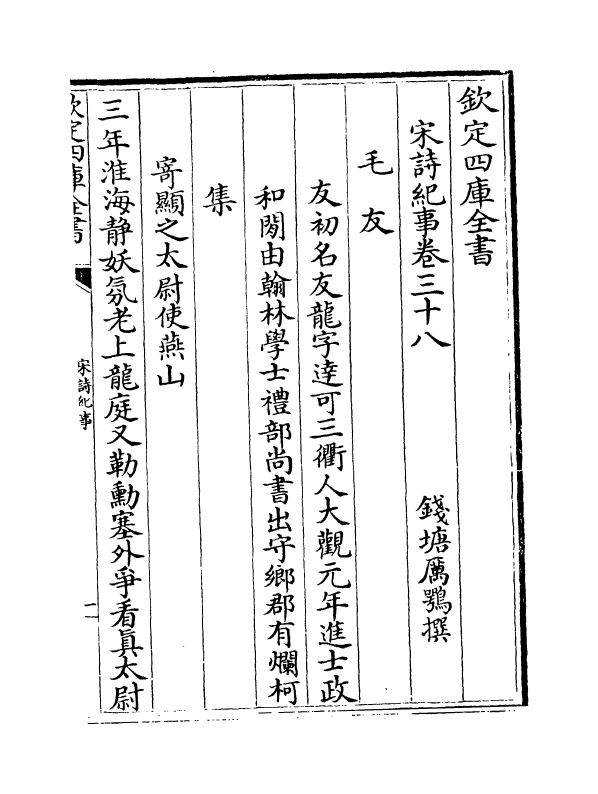 欽定四庫全書
宋詩紀事卷三十八
錢塘厲鶚撰
毛友
友初名友龍字達可三衢人大觀元年進士政
和閒由翰林學士禮部尚書出守鄉郡有爛柯
集
寄顯之太尉使燕山
三年淮海静妖氛老上龍庭又勒勳塞外爭看真太尉
欽定四庫全書
宋詩紀事
一